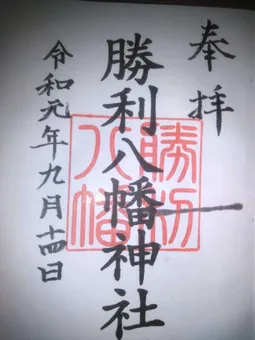 奉拝
勝利八幡神社
勝利八幡
令和元年九月十四日